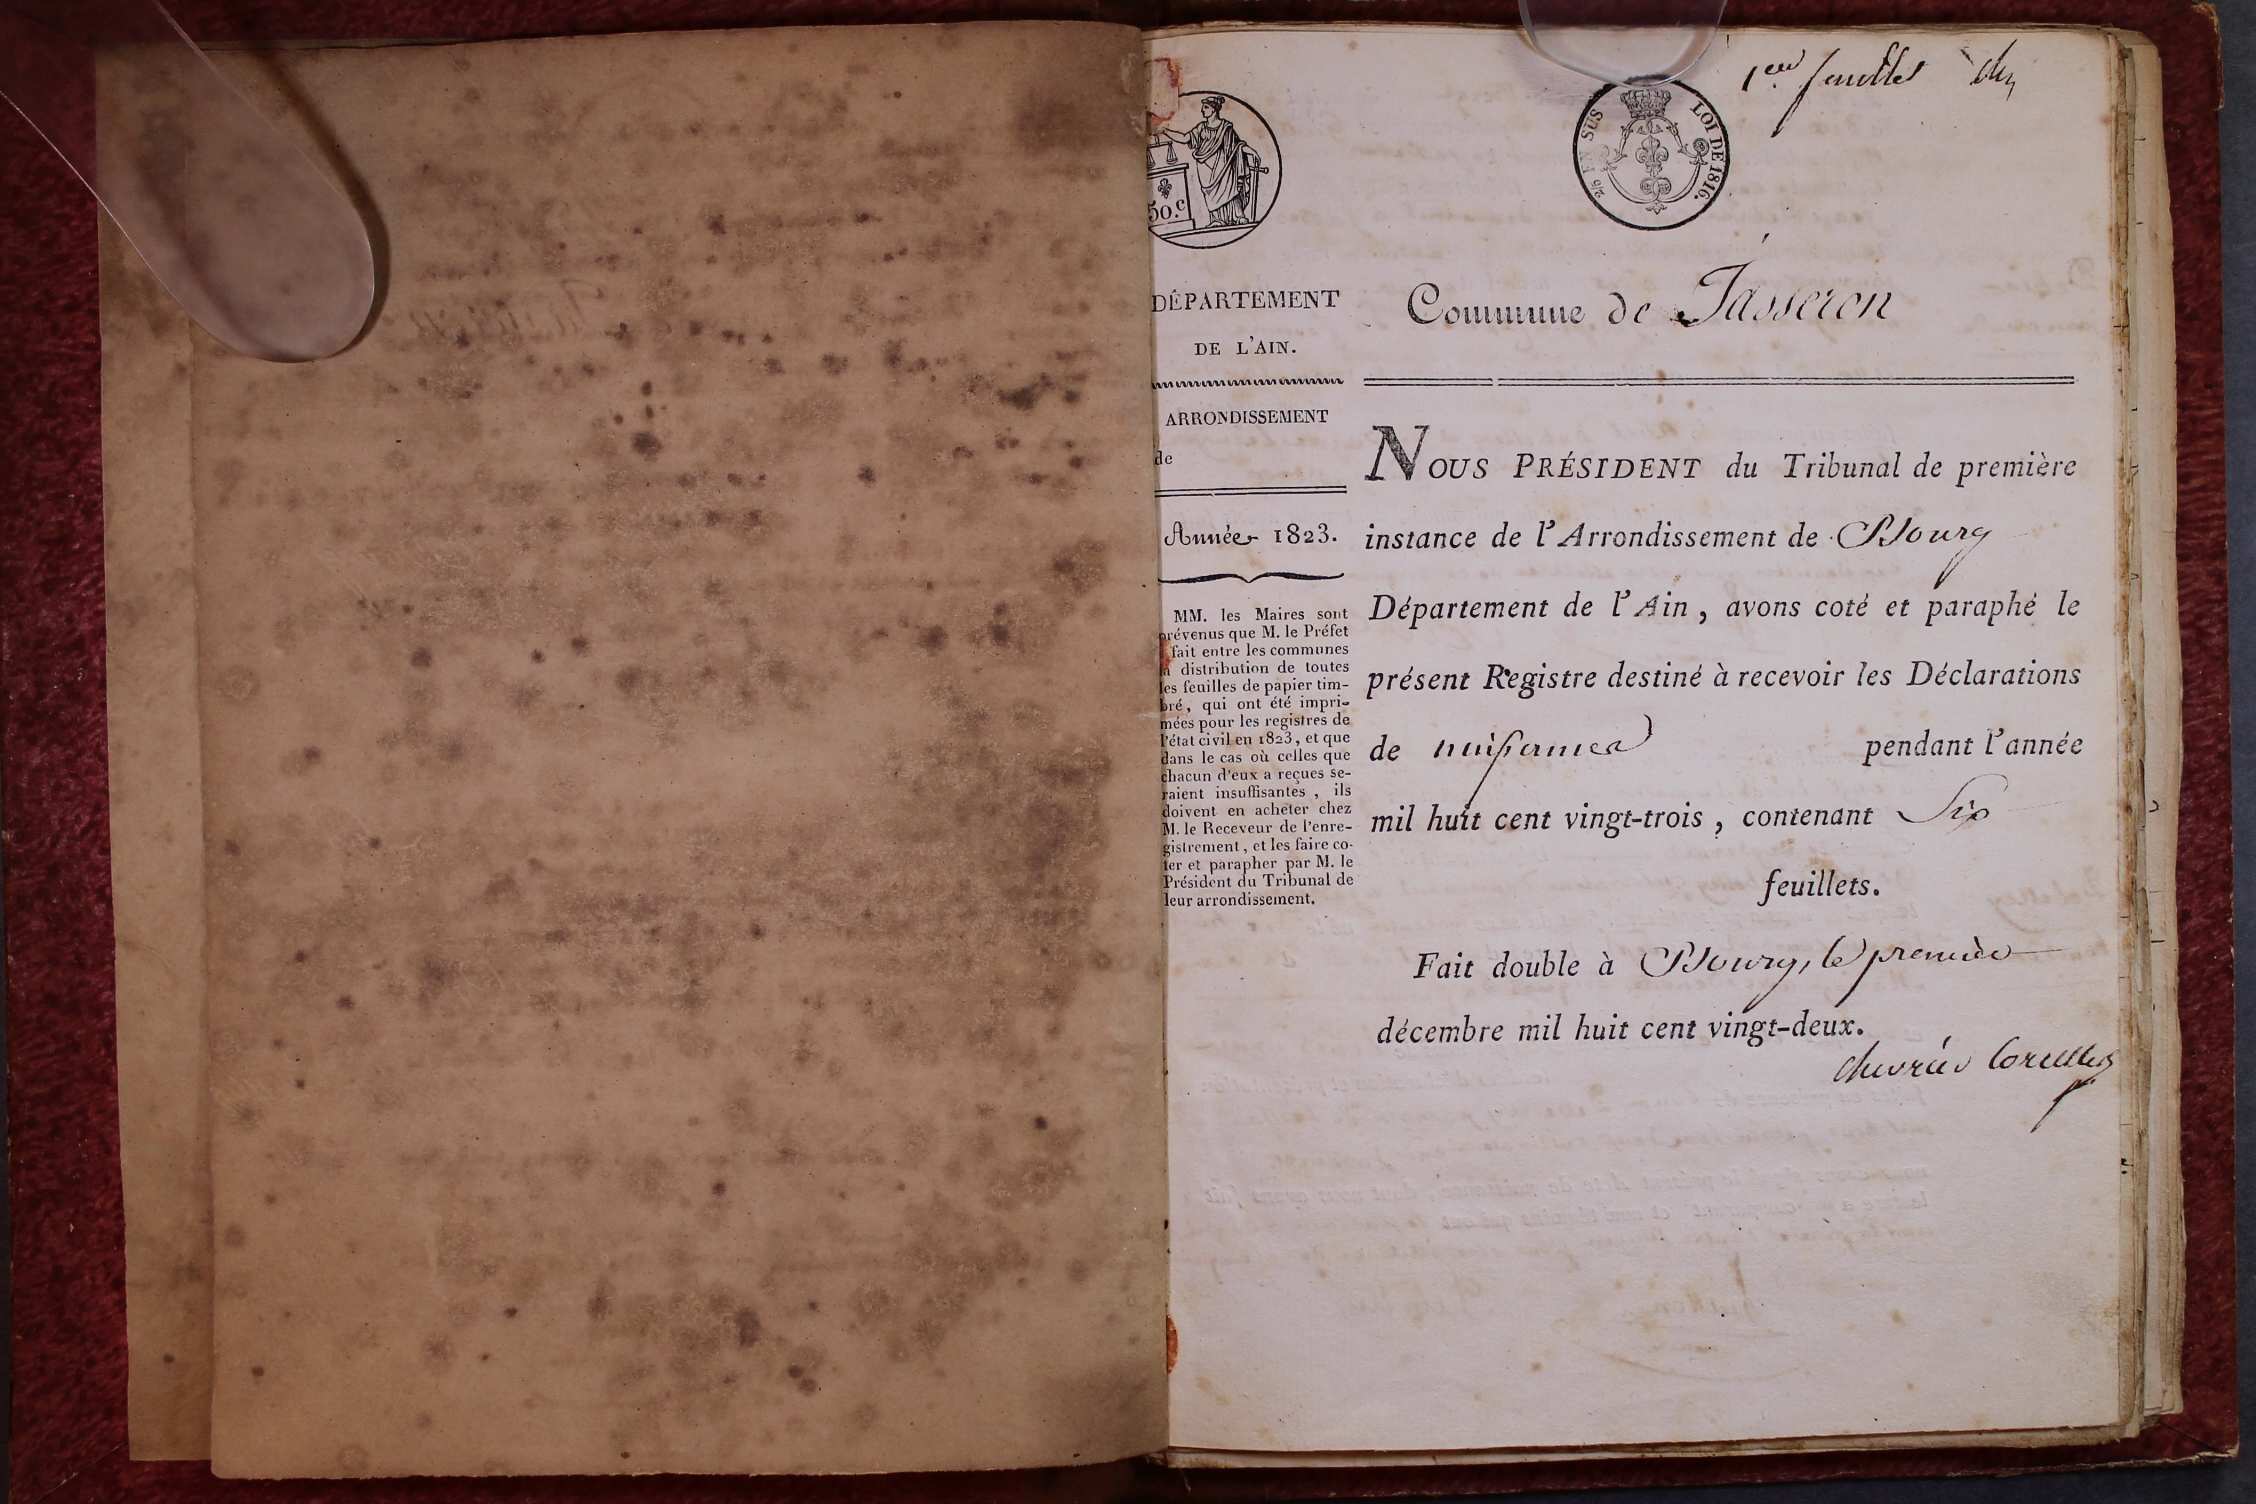 1er feuillet
50.c
25 EN SUS
LOI DE 1816.
DÉPARTEMENT
DE L'AIN.
ARRONDISSEMENT
de
Année 1823.
MM. les Maires sont
prévenus que M. le Préfet
fait entre les communes
la distribution de toutes
les feuilles de papier tim-
bré, qui ont été impri-
mées pour les registres de
l'état civil en 1823, et que
dans le cas où celles que
chacun d'eux a reçues se-
raient insuffisantes, ils
doivent en acheter chez
M. le Receveur de l'enre-
gistrement, et les faire co-
ter et parapher par M. le
Président du Tribunal de
leur arrondissement.
Commune de Jasseron
NOUS PRÉSIDENT du Tribunal de première
instance de l'Arrondissement de Bourg
Département de l'Ain, avons coté et paraphé le
présent Registre destiné à recevoir les Déclarations
de naissances pendant l'année
mil huit cent vingt-trois, contenant Six
feuillets.
Fait double à Bourg, le premier
décembre mil huit cent vingt-deux.